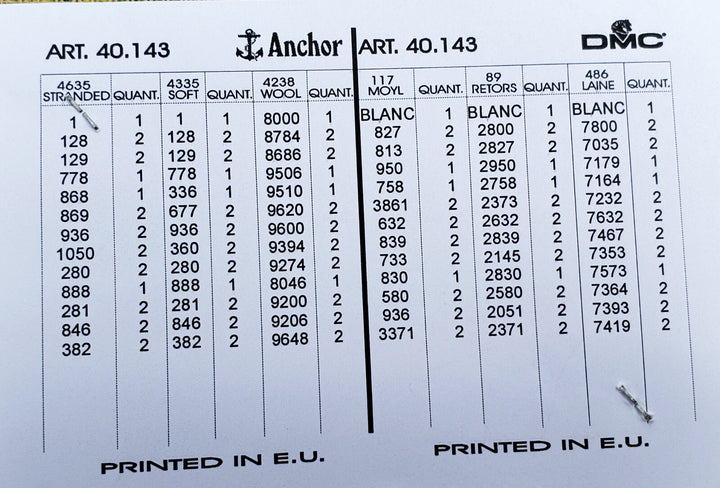 ART. 40.143 Anchor ART. 40.143 DMC
4635 4335 4238 117 89 486
STRANDED QUANT. SOFT QUANT. WOOL QUANT. MOYL QUANT. RETORS QUANT. LAINE QUANT.
1 1 1 1 8000 1 BLANC 1 BLANC 1 BLANC 1
128 2 128 2 8784 2 827 2 2800 2 7800 2
129 2 129 2 8686 2 813 2 2827 2 7035 2
778 1 778 1 9506 1 950 1 2950 1 7179 1
868 1 336 1 9510 1 758 1 2758 1 7164 1
869 2 677 2 9620 2 3861 2 2373 2 7232 2
936 2 936 2 9600 2 632 2 2632 2 7632 2
1050 2 360 2 9394 2 839 2 2839 2 7467 2
280 2 280 2 9274 2 733 2 2145 2 7353 2
888 1 888 1 8046 1 830 1 2830 1 7573 1
281 2 281 2 9200 2 580 2 2580 2 7364 2
846 2 846 2 9206 2 936 2 2051 2 7393 2
382 2 382 2 9648 2 3371 2 2371 2 7419 2
PRINTED IN E.U. PRINTED IN E.U.